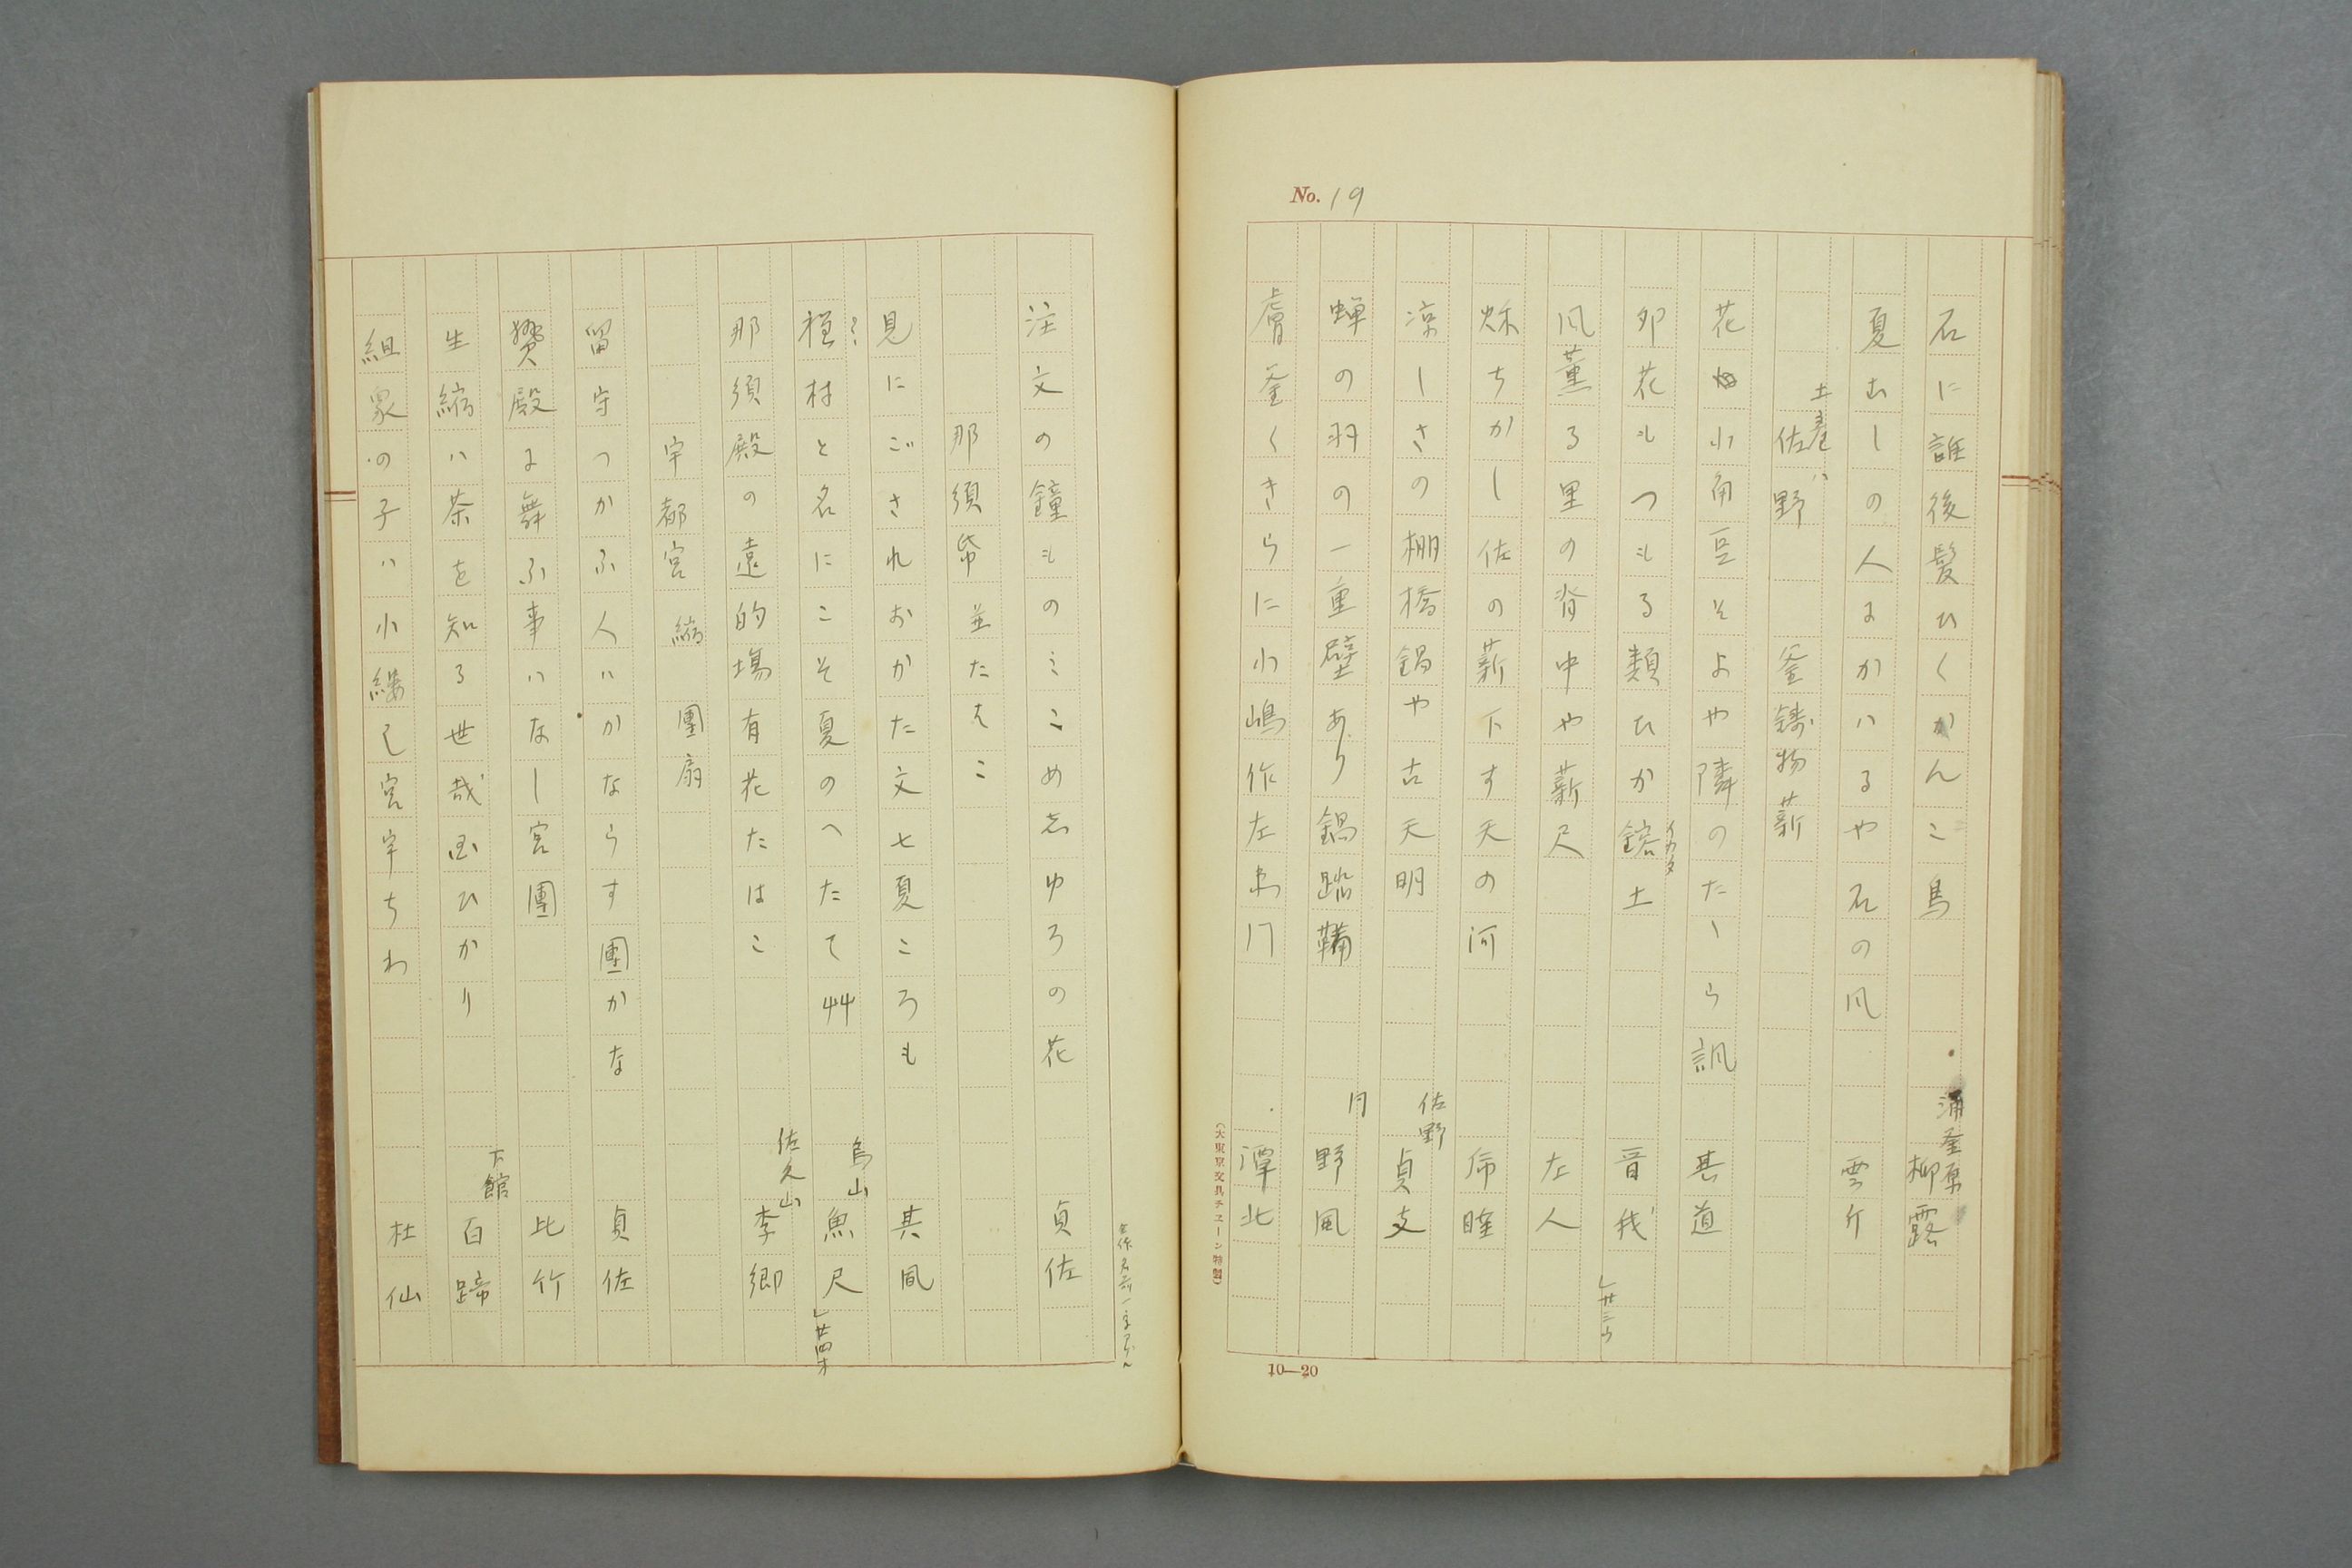 No. 19
石に誰後髪ひくかんこ鳥 涌釜原 柳露
夏むしの人よかハるや石の風 雲介
土産ハ
佐野 釜鋳物薪
花小角豆そよや隣のたーら諷 其道
卯花もつもる類ひか鎔土 晋我
イカタ
」廿三ウ
風薫る里の背中や薪尺 左人
秌ちかし佐の薪下す天の河 命睦
涼しさの棚橋鍋や古天明 佐野 貞支
蝉の羽の一重壁あり鍋踏鞴 同 野風
膚釜くきらに小嶋作左衛門 潭北
(大東京文具チエーン特製)
10—20
注文の鐘ものミこめ志ゆろの花 貞佐
那須 帋並たはこ
見にごされおかた文七夏ころも 其風
?
種村と名にこそ夏のへたて艸 烏山 魚尺
」廿四オ
那須殿の遠的場有花たはこ 佐久山 李郷
宇都宮 縮 團扇
留守つかふ人ハかならす團かな 貞佐
贄殿よ舞ふ事ハなし宮團 比竹
生縮ハ茶を知る世哉国ひかり 下館 百蹄
組家の子ハ小縷し宮宇ちわ 杜仙